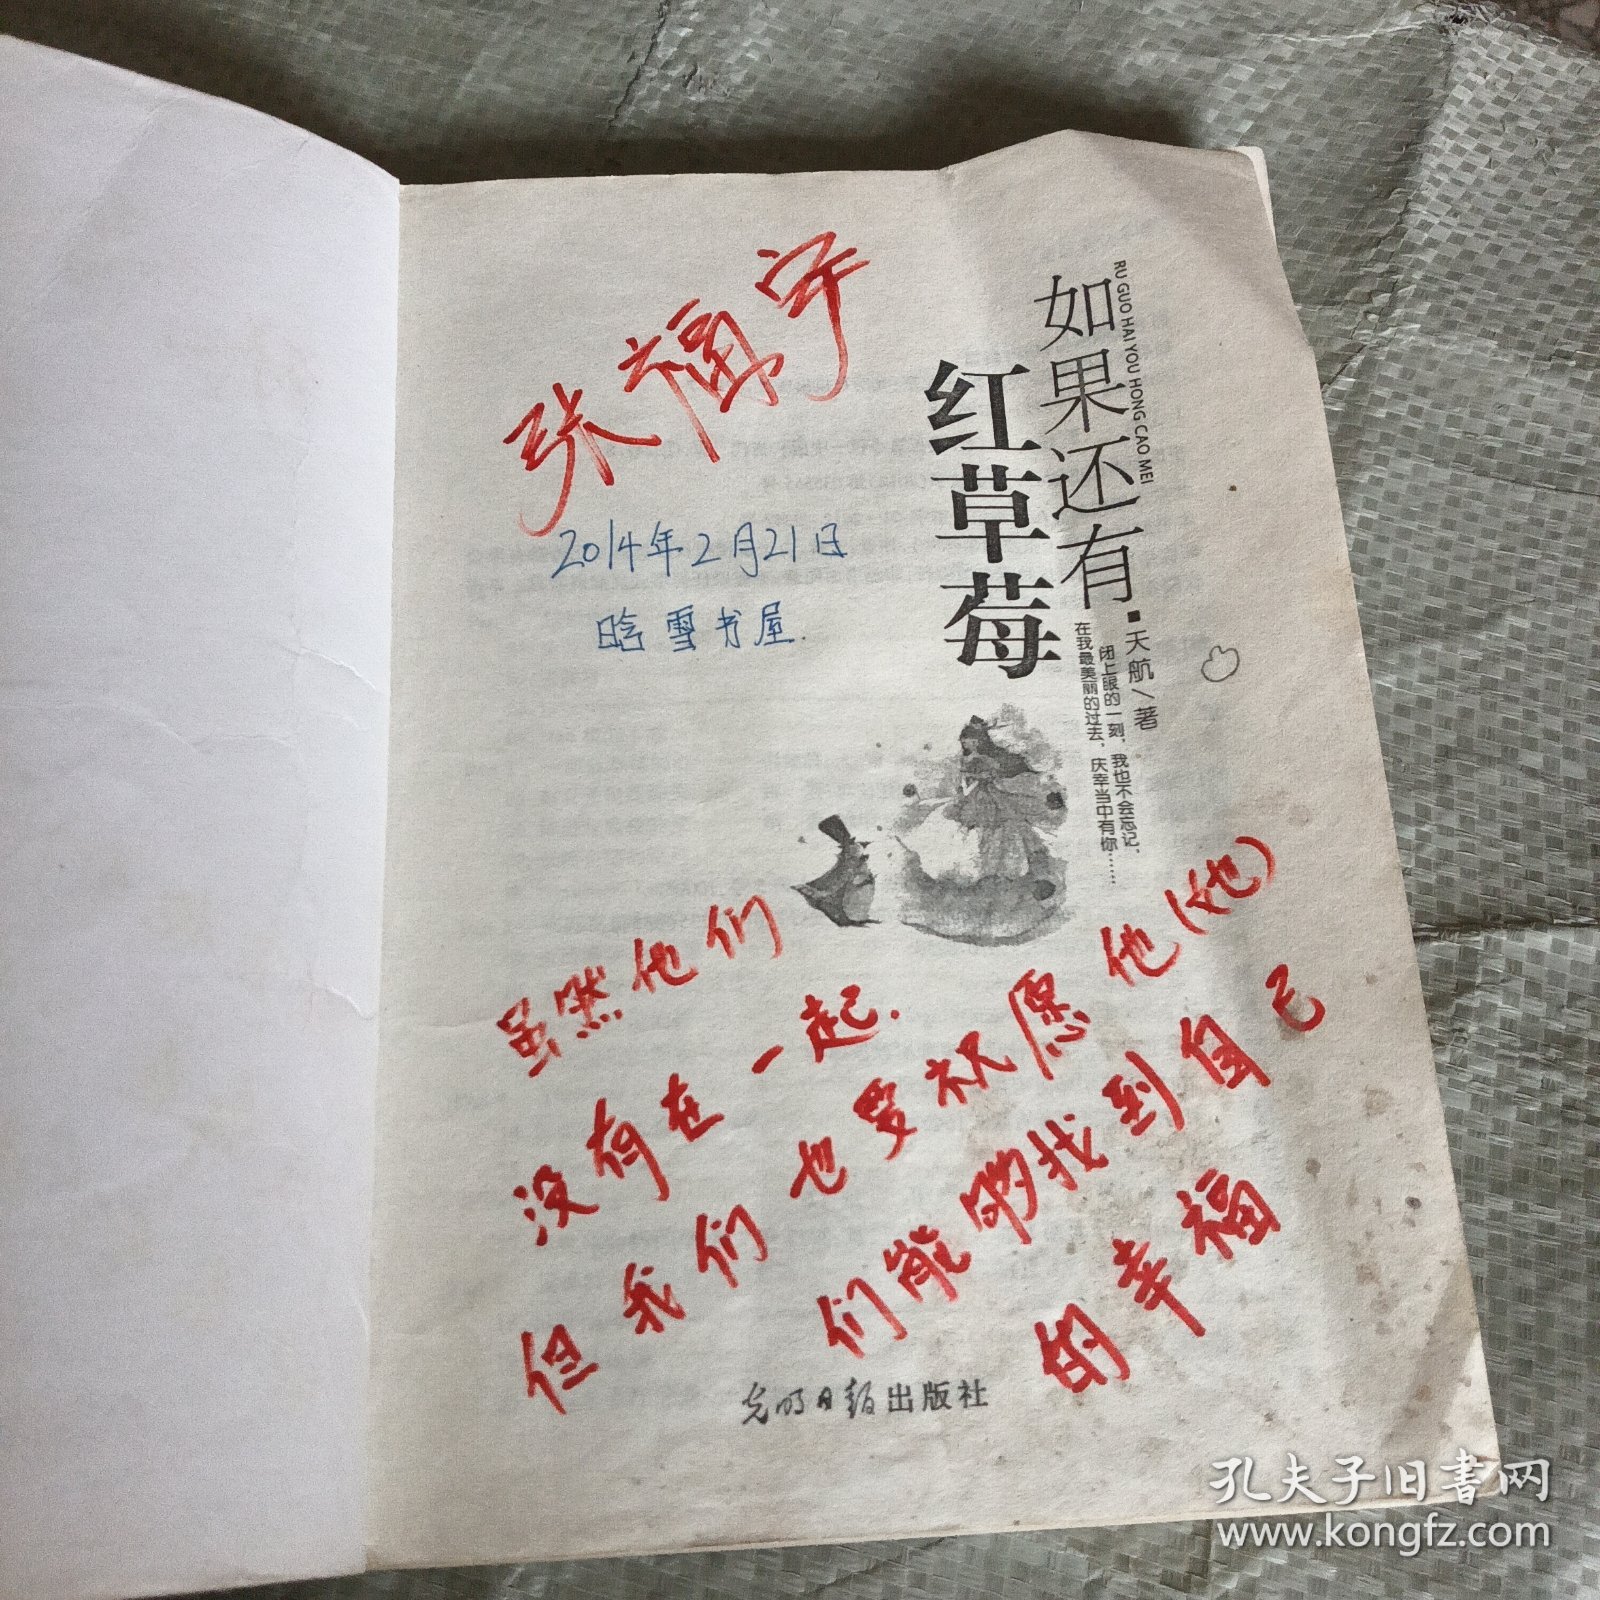 张福宇
2014年2月21日
晗雪书屋.
RU GUO HAI YOU HONG CAO MEI
如果还有
红草莓
·天航/著
闭上眼的一刻，我也不会忘记，
在我最美丽的过去，庆幸当中有你……
虽然他们
没有在一起.
但我们也要祝愿他(她)
们能够找到自己
的幸福
光明日报出版社
孔夫子旧书网
www.kongfz.com